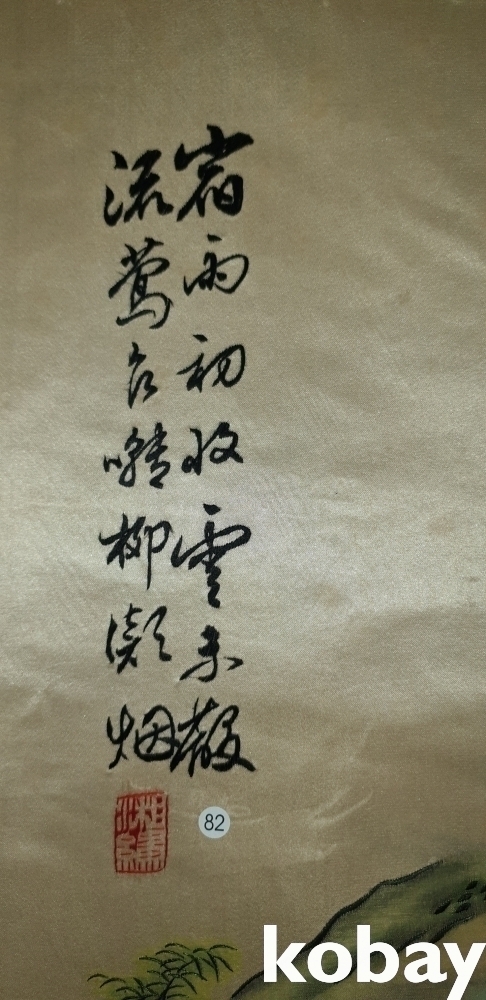 宿雨初收雲未散
流鶯囀柳凝烟
湘繡
82
kobay